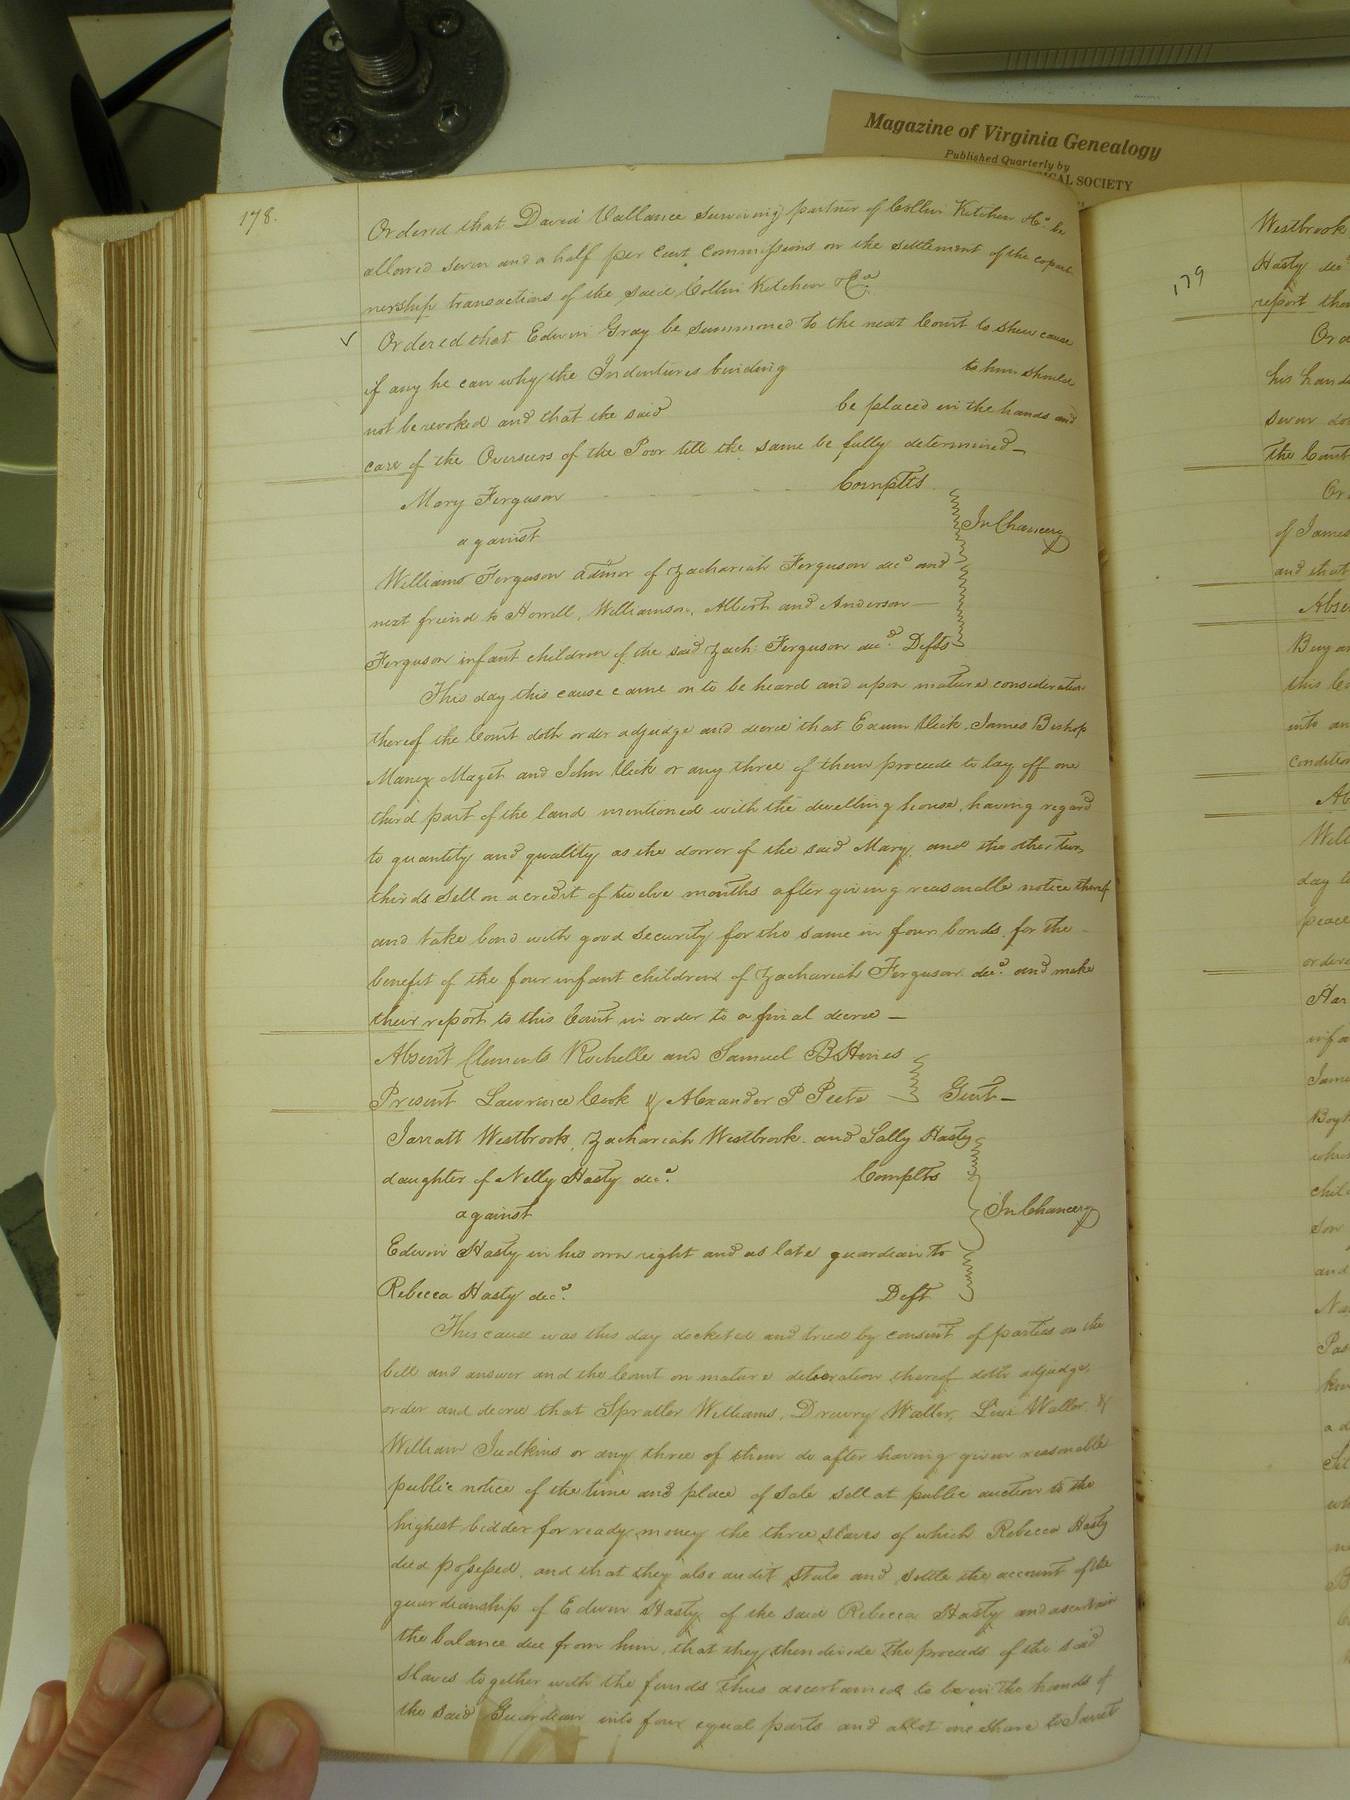 Magazine of Virginia Genealogy
Published Quarterly by
ICAL SOCIETY
178.
Ordered that David Vallance surviving partner of Collin Kitchen & Co. be
allowed seven and a half per cent commissions on the settlement of the copart
nership transactions of the said Collin Kitchen & Co.
✓ Ordered that Edwin Gray be summoned to the next Court to shew cause
if any he can why the Indentures binding to him should
not be revoked and that the said be placed in the hands and
care of the Overseers of the Poor till the same be fully determined—
Mary Ferguson Complts
against
In Chancery
Williams Ferguson admor of Zachariah Ferguson decd and
next friend to Horrell, Williamson, Albert and Anderson—
Ferguson infant children of the said Zach: Ferguson decd. Defts
This day this cause came on to be heard and upon mature consideration
thereof the Court doth order adjudge and decree that Exum Vick, James Bishop
Maney Maget and John Vick or any three of them proceede to lay off one
third part of the land mentioned with the dwelling house, having regard
to quantity and quality as the dower of the said Mary, and the other two
thirds sell on a credit of twelve months after giving reasonable notice thereof
and take bond with good security for the same in four bonds, for the
benefit of the four infant children of Zachariah Ferguson decd. and make
their report to this Court in order to a final decree—
Absent Clements Rochelle and Samuel B Hines
Present Lawrence Cook & Alexander P Peete Gent—
Jarratt Westbrook, Zachariah Westbrook and Sally Hasty
daughter of Nelly Hasty decd. Complts
against
In Chancery
Edwin Hasty in his own right and as late guardian to
Rebecca Hasty decd. Deft
This cause was this day docketed and tried by consent of parties on the
bill and answer and the Court on mature deliberation thereof doth adjudge,
order and decree that Spratler Williams, Drewry Waller, Levi Waller &
William Judkins or any three of them do after having given reasonable
public notice of the time and place of sale sell at public auction to the
highest bidder for ready money the three slaves of which Rebecca Hasty
died possessed, and that they also audit state and settle the account of the
guardianship of Edwin Hasty of the said Rebecca Hasty and ascertain
the balance due from him, that they then divide the proceeds of the said
slaves together with the funds thus ascertained to be in the hands of
the said Guardian into four equal parts and allot one share to Jarret
179
Westbrook
Hasty decd
report
his
seven
the Court
of James
and that
this
into an
day